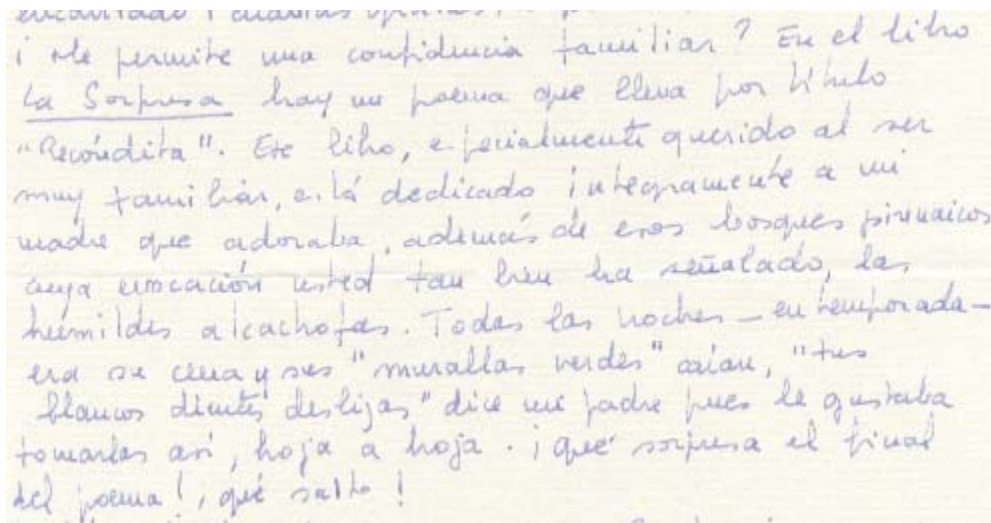 ¿Me permite una confidencia familiar? En el libro
La Sorpresa hay un poema que lleva por título
"Recóndita". Ese libro, especialmente querido al ser
muy familiar, está dedicado íntegramente a mi
madre que adoraba, además de esos bosques pirenaicos
cuya evocación usted tan bien ha señalado, las
humildes alcachofas. Todas las noches – en temporada –
era su cena y sus "murallas verdes" caían, "tus
blancos dientes deslizas" dice mi padre pues le gustaba
tomarlas así, hoja a hoja. ¡qué sorpresa el final
del poema!, ¡qué salto!